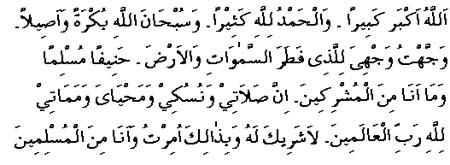 اَللّٰهُ اَكْبَر كَبِيرًا ـ وَالْحَمْدُ لِلّٰهِ كَثِيْرًا. وَسُبْحَانَ اللّٰهِ بُكْرَةً وَاَصِيلاً.
وَجَّهْتُ وَجْهِىَ لِلَّذِى فَطَرَ السَّمٰوَاتِ وَالْاَرْضَ ـ حَنِيفًا مُسْلِمًا
وَمَا اَنَا مِنَ الْمُشْرِكِينَ. اِنَّ صَلَاتِيْ وَنُسُكِيْ وَمَحْيَاىَ وَمَمَاتِيْ
لِلّٰهِ رَبِّ الْعَالَمِينَ. لَاشَرِيكَ لَهُ وَبِذٰالِكَ اُمِرْتُ وَاَنَا مِنَ الْمُسْلِمِينَ